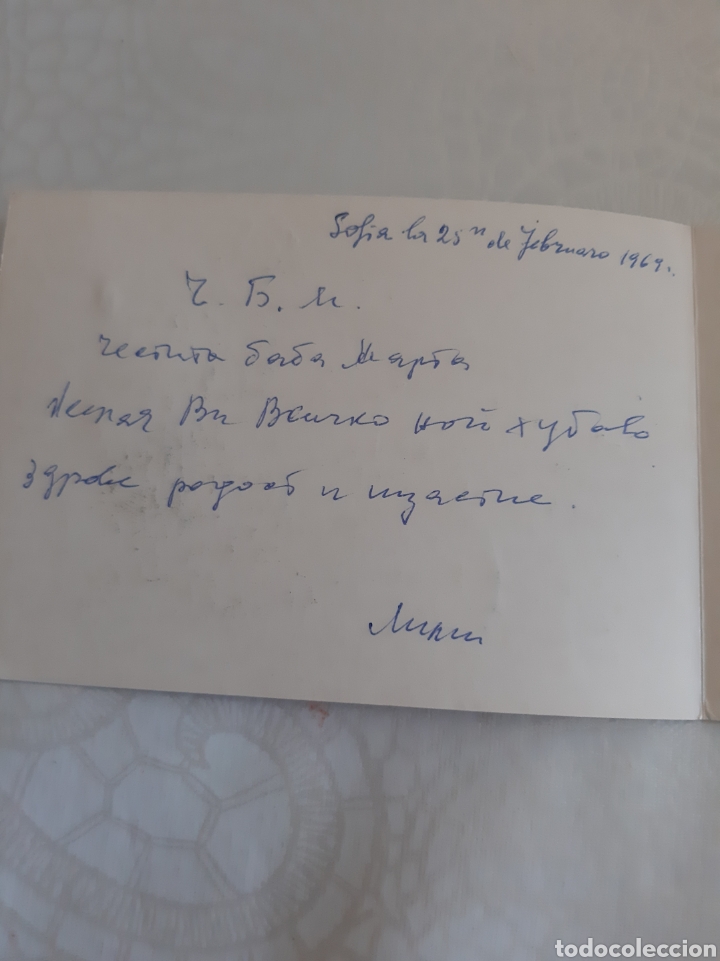 Sofia la 25n de februaro 1969.
Ч. Б. М.
Честита баба Марта
Желая Ви Всичко най хубаво
Здраве радост и щастие.
todocoleccion